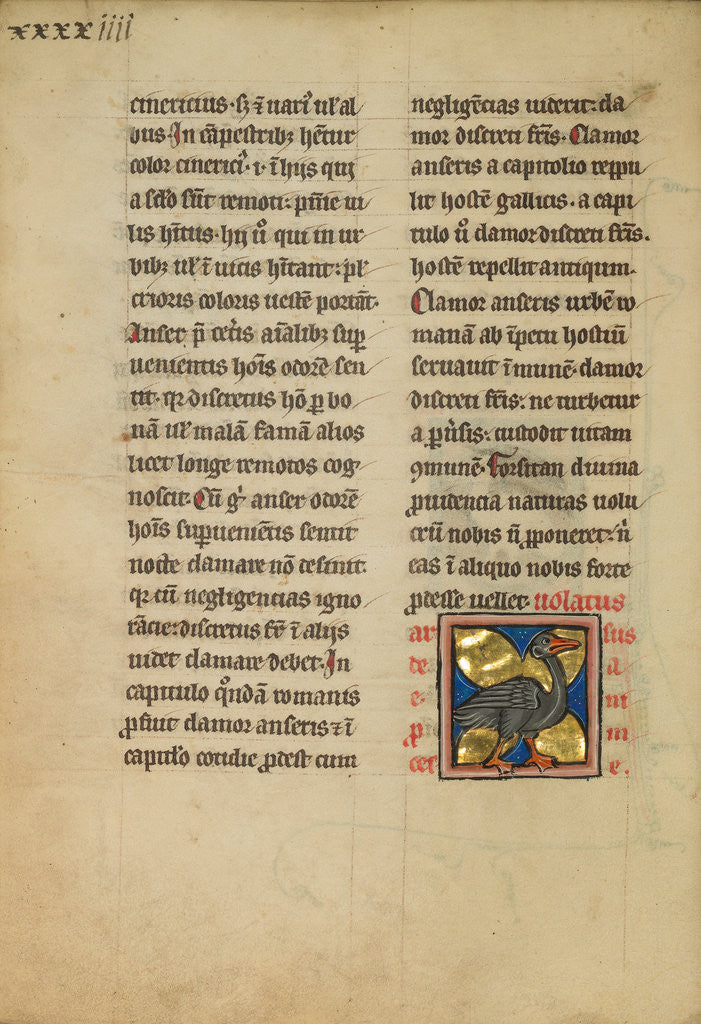 xxxxiiii
cinericius · sꝫ ⁊ uariꝰ ul̓ al
bus · In cāpestribꝫ hētur
color cinericiꝰ · i · ī hijs qui
a sclo sūt remoti : pnīe ui
lis hītus · hij ũo qui in ur
bibꝫ ul̓ ī uicis hītant : pl̓
crioris coloris uestē portāt ·
Anser p̄ cet̓is aīalibꝫ suꝑ
uenientis hoīs odorē sen
tit · qr discretus hō ꝑ bo
nā ul̓ malā famā alios
licet longe remotos cog
noscit · Cū gͥ anser odorē
hoīs suꝑuenīētis sentit
nocte clamare nō desinit ·
qr cū negligentias igno
rācie : discretus fr̄ ī alijs
uidet clamare debet · In
capitulo qͦndā romanis
ꝓfuit clamor anseris ⁊ ī
capitulo cotidie ꝓdest cum
negligēcias uiderit : cla
mor discreti fr̄is · Clamor
anseris a capitolio reppu
lit hostē gallicū · a capi
tulo ũo clamor discreti fr̄is ·
hostē repellit antiquum ·
Clamor anseris urbem ro
manā ab īpetu hostiū
seruauit īmunē · clamor
discreti fr̄is : ne turbetur
a ꝑuꝰsis : custodit uitam
ꝯmunē · Forsitan diuina
ꝓuidencia naturas uolu
crū nobis ñ ꝓponeret : nͥ
eas ī aliquo nobis forte
ꝓdesse uellet · uolatus
ar sus
de a
e · ni
ꝓ m
cer e .